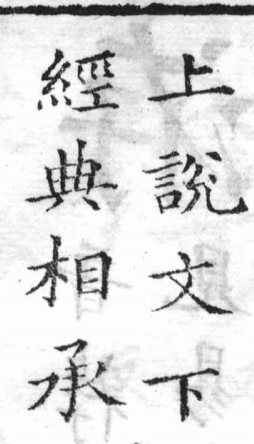 上說文下
經典相承